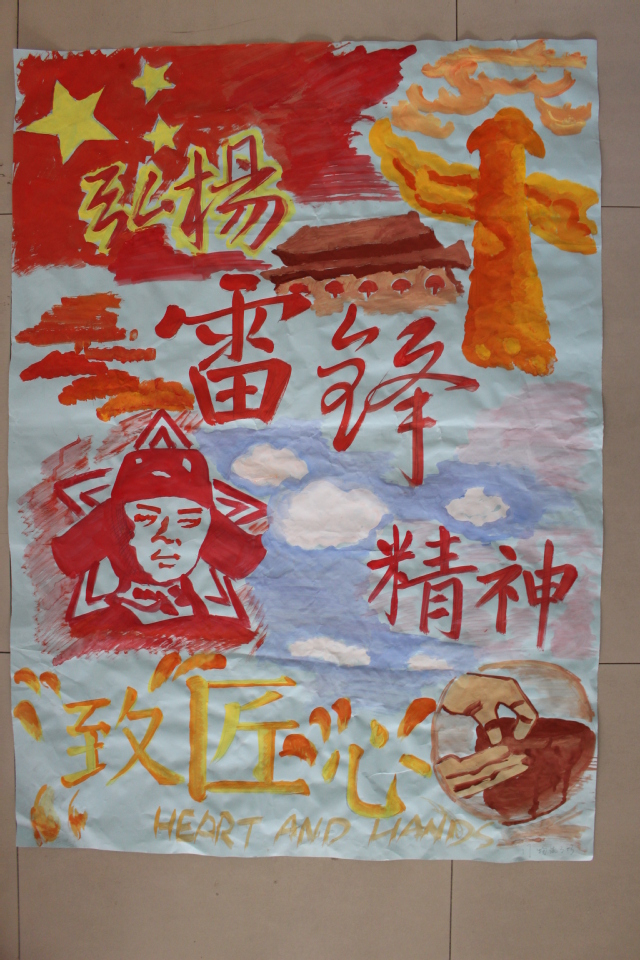 弘楊
雷锋
精神
“致匠心”
HEART AND HANDS